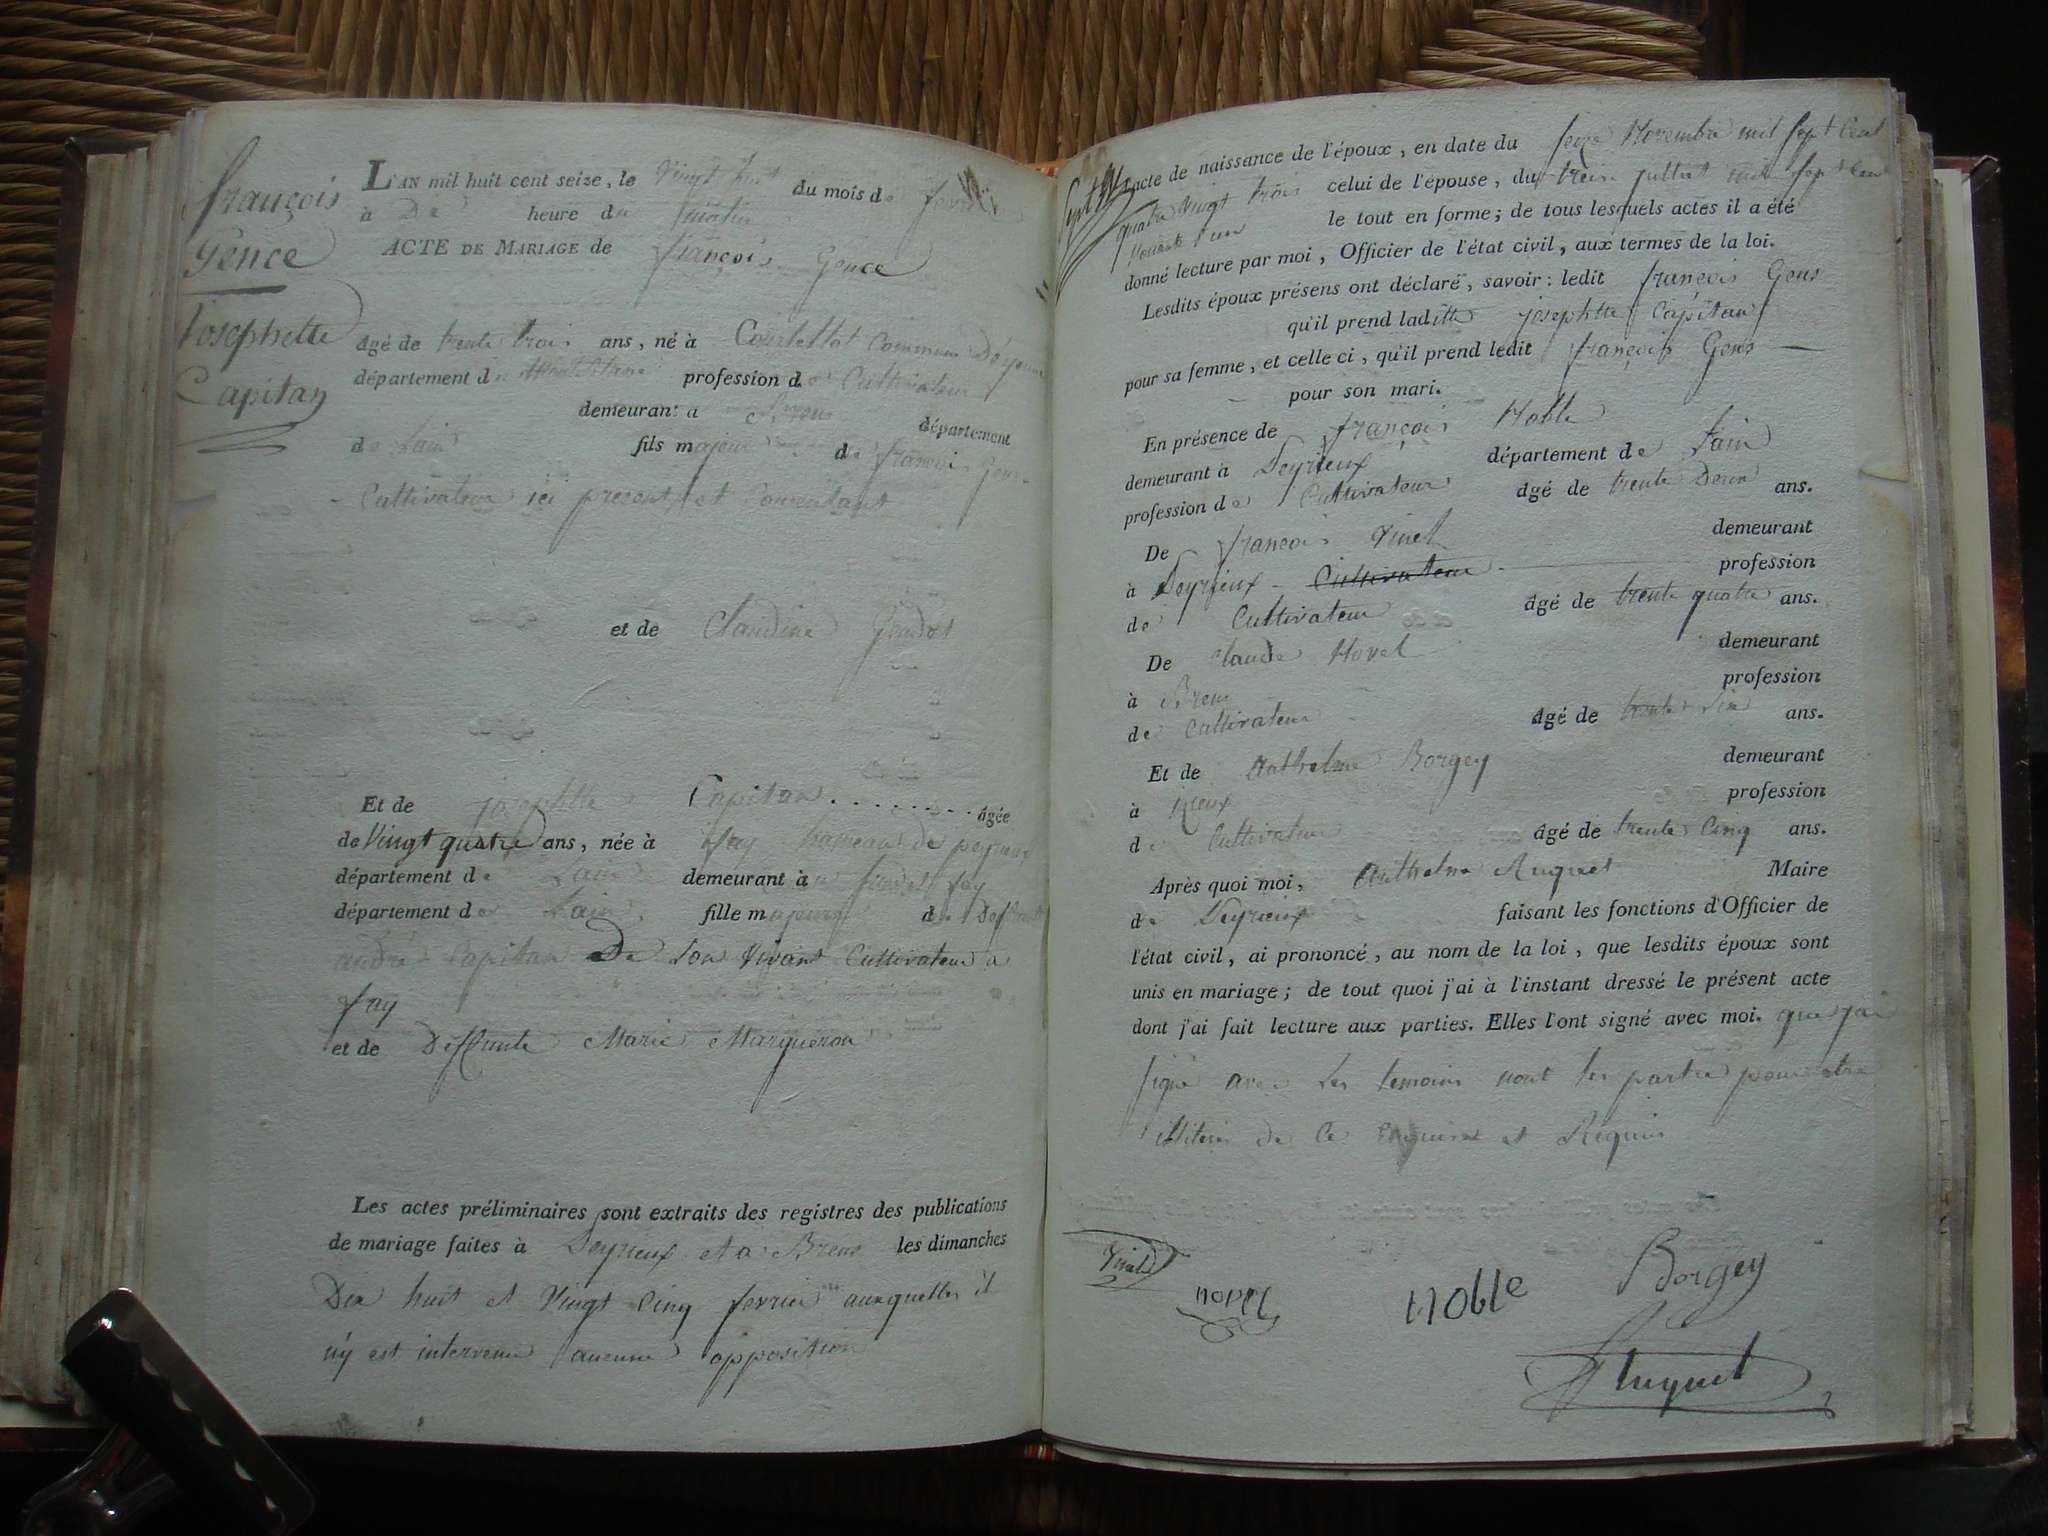 françois
Gence
Josephette
Capitan
L'AN mil huit cent seize, le Vingt huit du mois de fevrier
à Dix heure du matin
ACTE DE MARIAGE de françois Gence
âgé de trente trois ans, né à Commune
département du profession de Cultivateur
demeurant a Brens département
de Lain fils majeur de françois Gens
Cultivateur ici present et Consentant
et de Claudine
Et de josephtte Capitan . . . . . . . . . âgée
de Vingt quatre ans, née à fay hameau de peyrieux
département de Lain demeurant à fay
département de Lain fille majeure de Deffunt
andré Capitan De Son Vivant Cultivateur a
fay
et de Deffunte Marie Marqueron
Les actes préliminaires sont extraits des registres des publications
de mariage faites à Peyrieux et a Brens les dimanches
Dix huit et Vingt Cinq fevrier auxquelles il
n'y est intervenu aucune opposition
acte de naissance de l'époux, en date du seize Novembre mil sept Cent
quatre Vingt trois celui de l'épouse, du treize juillet mil sept Cent
nonante un le tout en forme; de tous lesquels actes il a été
donné lecture par moi, Officier de l'état civil, aux termes de la loi.
Lesdits époux présens ont déclaré, savoir: ledit françois Gens
qu'il prend laditte josephtte Capitan
pour sa femme, et celle ci, qu'il prend ledit françois Gens
pour son mari.
En présence de françois Noble
demeurant à Peyrieux département de Lain
profession de Cultivateur âgé de trente Deux ans.
De françois Vinet demeurant
à Peyrieux Cultivateur profession
de Cultivateur âgé de trente quatre ans.
De Claude Novel demeurant
à Brens profession
de Cultivateur âgé de trente Six ans.
Et de Anthelme Borgey demeurant
à profession
de Cultivateur âgé de trente Cinq ans.
Après quoi moi, Anthelme Huguet Maire
de Peyrieux faisant les fonctions d'Officier de
l'état civil, ai prononcé, au nom de la loi, que lesdits époux sont
unis en mariage; de tout quoi j'ai à l'instant dressé le présent acte
dont j'ai fait lecture aux parties. Elles l'ont signé avec moi. que jai
signé avec Les temoins nont les parties pour etre
illiteré de Ce Enquis et Requis
Vinet
Novel
Noble
Borgey
Huguet